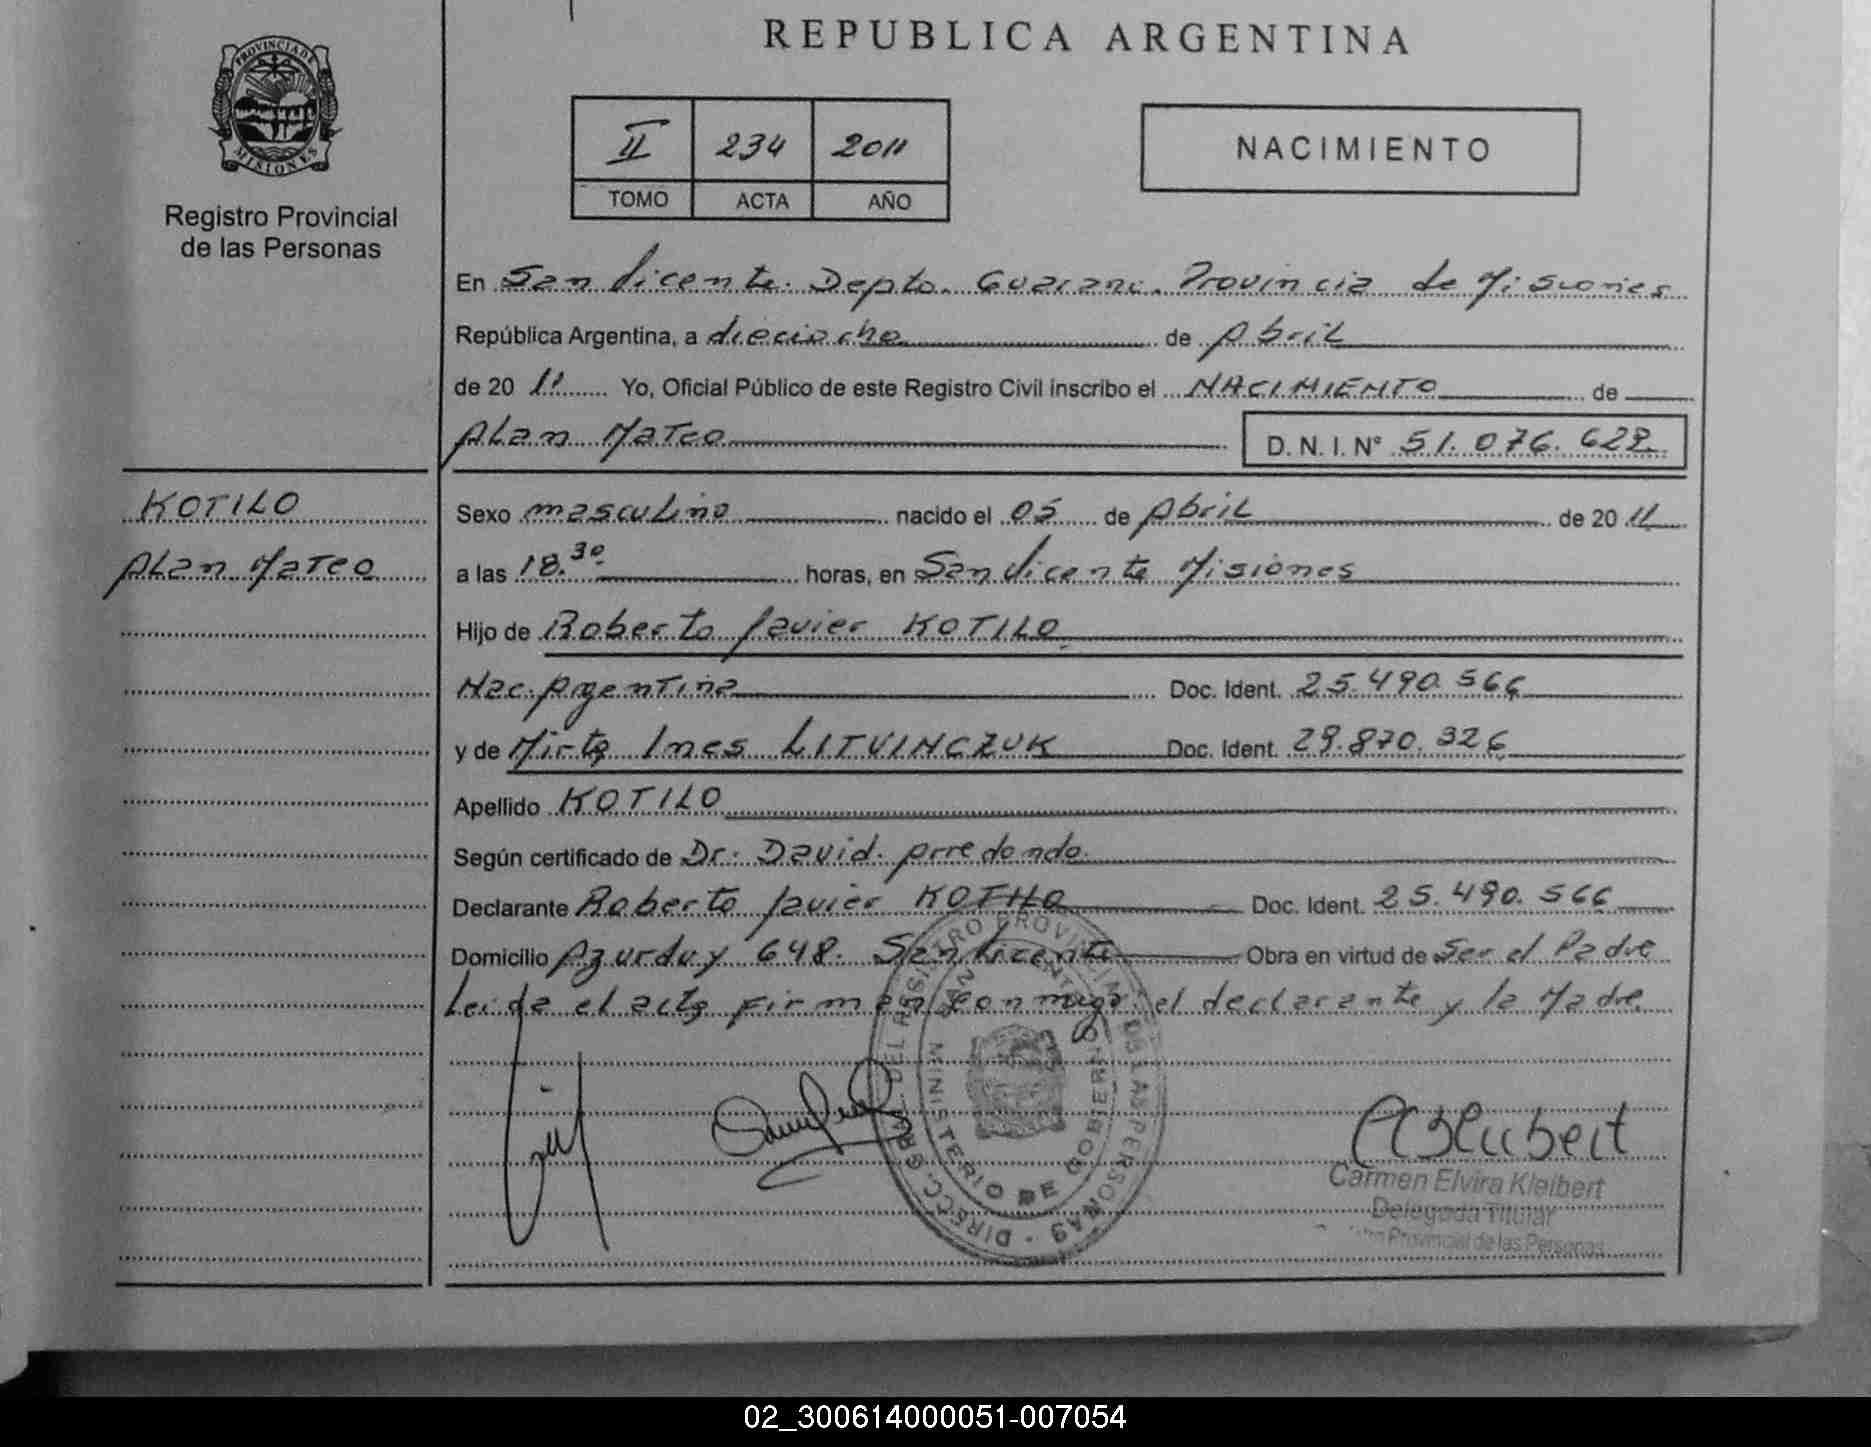 REPUBLICA ARGENTINA
PROVINCIA DE MISIONES
Registro Provincial
de las Personas
II 234 2011
TOMO ACTA AÑO
NACIMIENTO
En San Vicente. Depto. Guarani. Provincia de Misiones
República Argentina, a dieciocho de Abril
de 20 11 Yo, Oficial Público de este Registro Civil inscribo el NACIMIENTO de
Alan Mateo
D. N. I. Nº 51.076.629.
KOTILO
Alan Mateo
Sexo masculino nacido el 05 de Abril de 20 11
a las 18.30 horas, en San Vicente Misiones
Hijo de Roberto Javier KOTILO
Nac. Argentina Doc. Ident. 25.490.566
y de Mirta Ines LITVINCZUK Doc. Ident. 29.870.326
Apellido KOTILO
Según certificado de Dr. David. Arredondo.
Declarante Roberto Javier KOTILO Doc. Ident. 25.490.566
Domicilio Azurduy 648. San Vicente Obra en virtud de Ser el Padre
Leida el acta firman conmigo el declarante y la Madre
DIRECC. GRAL. DEL REGISTRO PROVINCIAL DE LAS PERSONAS
SAN VICENTE
MINISTERIO DE GOBIERNO
Carmen Elvira Kleibert
Delegada Titular
Provincial de las Personas
02_300614000051-007054